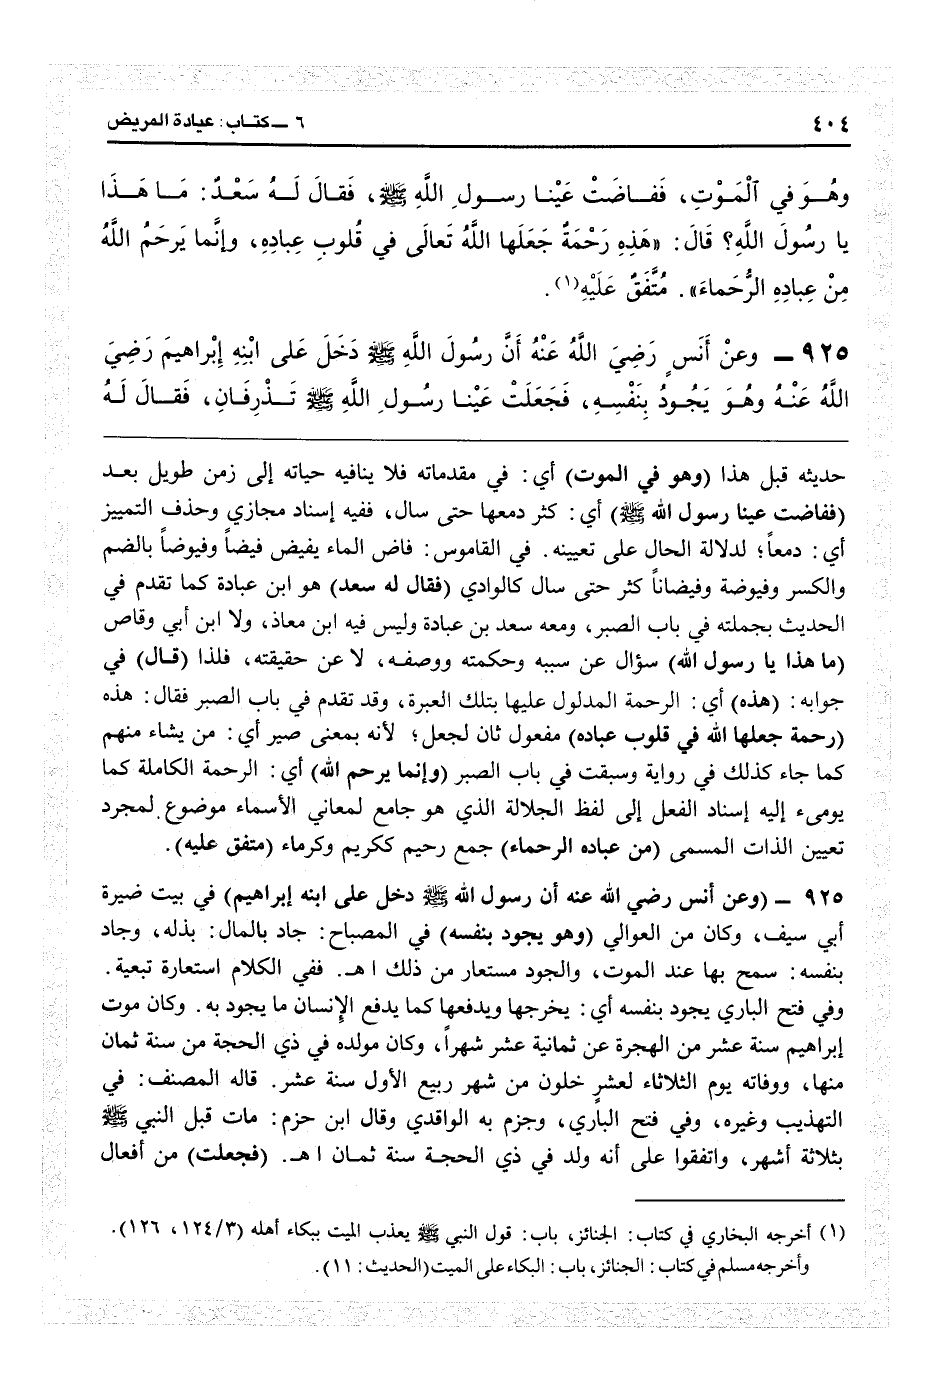 ٤٠٤
٦ ـ كتاب: عيادة المريض
وهُوَ في ٱلْمَوْتِ، فَفاضَتْ عَيْنا رسولِ اللَّهِ ﷺ، فَقالَ لَهُ سَعْدٌ: مَا هَذَا
يا رسُولَ اللَّهِ؟ قَالَ: «هَذِهِ رَحْمَةٌ جَعَلَها اللَّهُ تَعالَى في قُلوبِ عِبادِهِ، وإنَّما يَرحَمُ اللَّهُ
مِنْ عِبادِهِ الرُّحَماءَ». مُتَّفَقٌ عَلَيْهِ(١).
٩٢٥ ـ وعنْ أَنَسٍ رَضِيَ اللَّهُ عَنْهُ أَنَّ رسُولَ اللَّهِ ﷺ دَخَلَ عَلى ابْنِهِ إبْراهيمَ رَضِيَ
اللَّهُ عَنْهُ وهُوَ يَجُودُ بِنَفْسِهِ، فَجَعَلَتْ عَيْنا رسُولِ اللَّهِ ﷺ تَذْرِفَانِ، فَقالَ لَهُ
حديثه قبل هذا (وهو في الموت) أي: في مقدماته فلا ينافيه حياته إلى زمن طويل بعد
(ففاضت عينا رسول الله ﷺ) أي: كثر دمعها حتى سال، ففيه إسناد مجازي وحذف التمييز
أي: دمعاً؛ لدلالة الحال على تعيينه. في القاموس: فاض الماء يفيض فيضاً وفيوضاً بالضم
والكسر وفيوضة وفيضاناً كثر حتى سال كالوادي (فقال له سعد) هو ابن عبادة كما تقدم في
الحديث بجملته في باب الصبر، ومعه سعد بن عبادة وليس فيه ابن معاذ، ولا ابن أبي وقاص
(ما هذا يا رسول الله) سؤال عن سببه وحكمته ووصفه، لا عن حقيقته، فلذا (قال) في
جوابه: (هذه) أي: الرحمة المدلول عليها بتلك العبرة، وقد تقدم في باب الصبر فقال: هذه
(رحمة جعلها الله في قلوب عباده) مفعول ثان لجعل؛ لأنه بمعنى صير أي: من يشاء منهم
كما جاء كذلك في رواية وسبقت في باب الصبر (وإنما يرحم الله) أي: الرحمة الكاملة كما
يومىء إليه إسناد الفعل إلى لفظ الجلالة الذي هو جامع لمعاني الأسماء موضوع لمجرد
تعيين الذات المسمى (من عباده الرحماء) جمع رحيم ككريم وكرماء (متفق عليه).
٩٢٥ ـ (وعن أنس رضي الله عنه أن رسول الله ﷺ دخل على ابنه إبراهيم) في بيت ضيرة
أبي سيف، وكان من العوالي (وهو يجود بنفسه) في المصباح: جاد بالمال: بذله، وجاد
بنفسه: سمح بها عند الموت، والجود مستعار من ذلك اهـ. ففي الكلام استعارة تبعية.
وفي فتح الباري يجود بنفسه أي: يخرجها ويدفعها كما يدفع الإنسان ما يجود به. وكان موت
إبراهيم سنة عشر من الهجرة عن ثمانية عشر شهراً، وكان مولده في ذي الحجة من سنة ثمان
منها، ووفاته يوم الثلاثاء لعشرٍ خلون من شهر ربيع الأول سنة عشر. قاله المصنف: في
التهذيب وغيره، وفي فتح الباري، وجزم به الواقدي وقال ابن حزم: مات قبل النبي ﷺ
بثلاثة أشهر، واتفقوا على أنه ولد في ذي الحجة سنة ثمان اهـ. (فجعلت) من أفعال
(١) أخرجه البخاري في كتاب: الجنائز، باب: قول النبي ﷺ يعذب الميت ببكاء أهله (١٢٤/٣، ١٢٦).
وأخرجه مسلم في كتاب: الجنائز، باب: البكاء على الميت (الحديث: ١١).